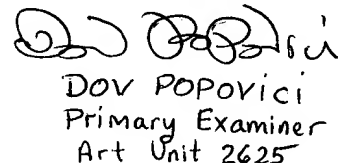 Dov Popovici
DOV POPOVICI
Primary Examiner
Art Unit 2625